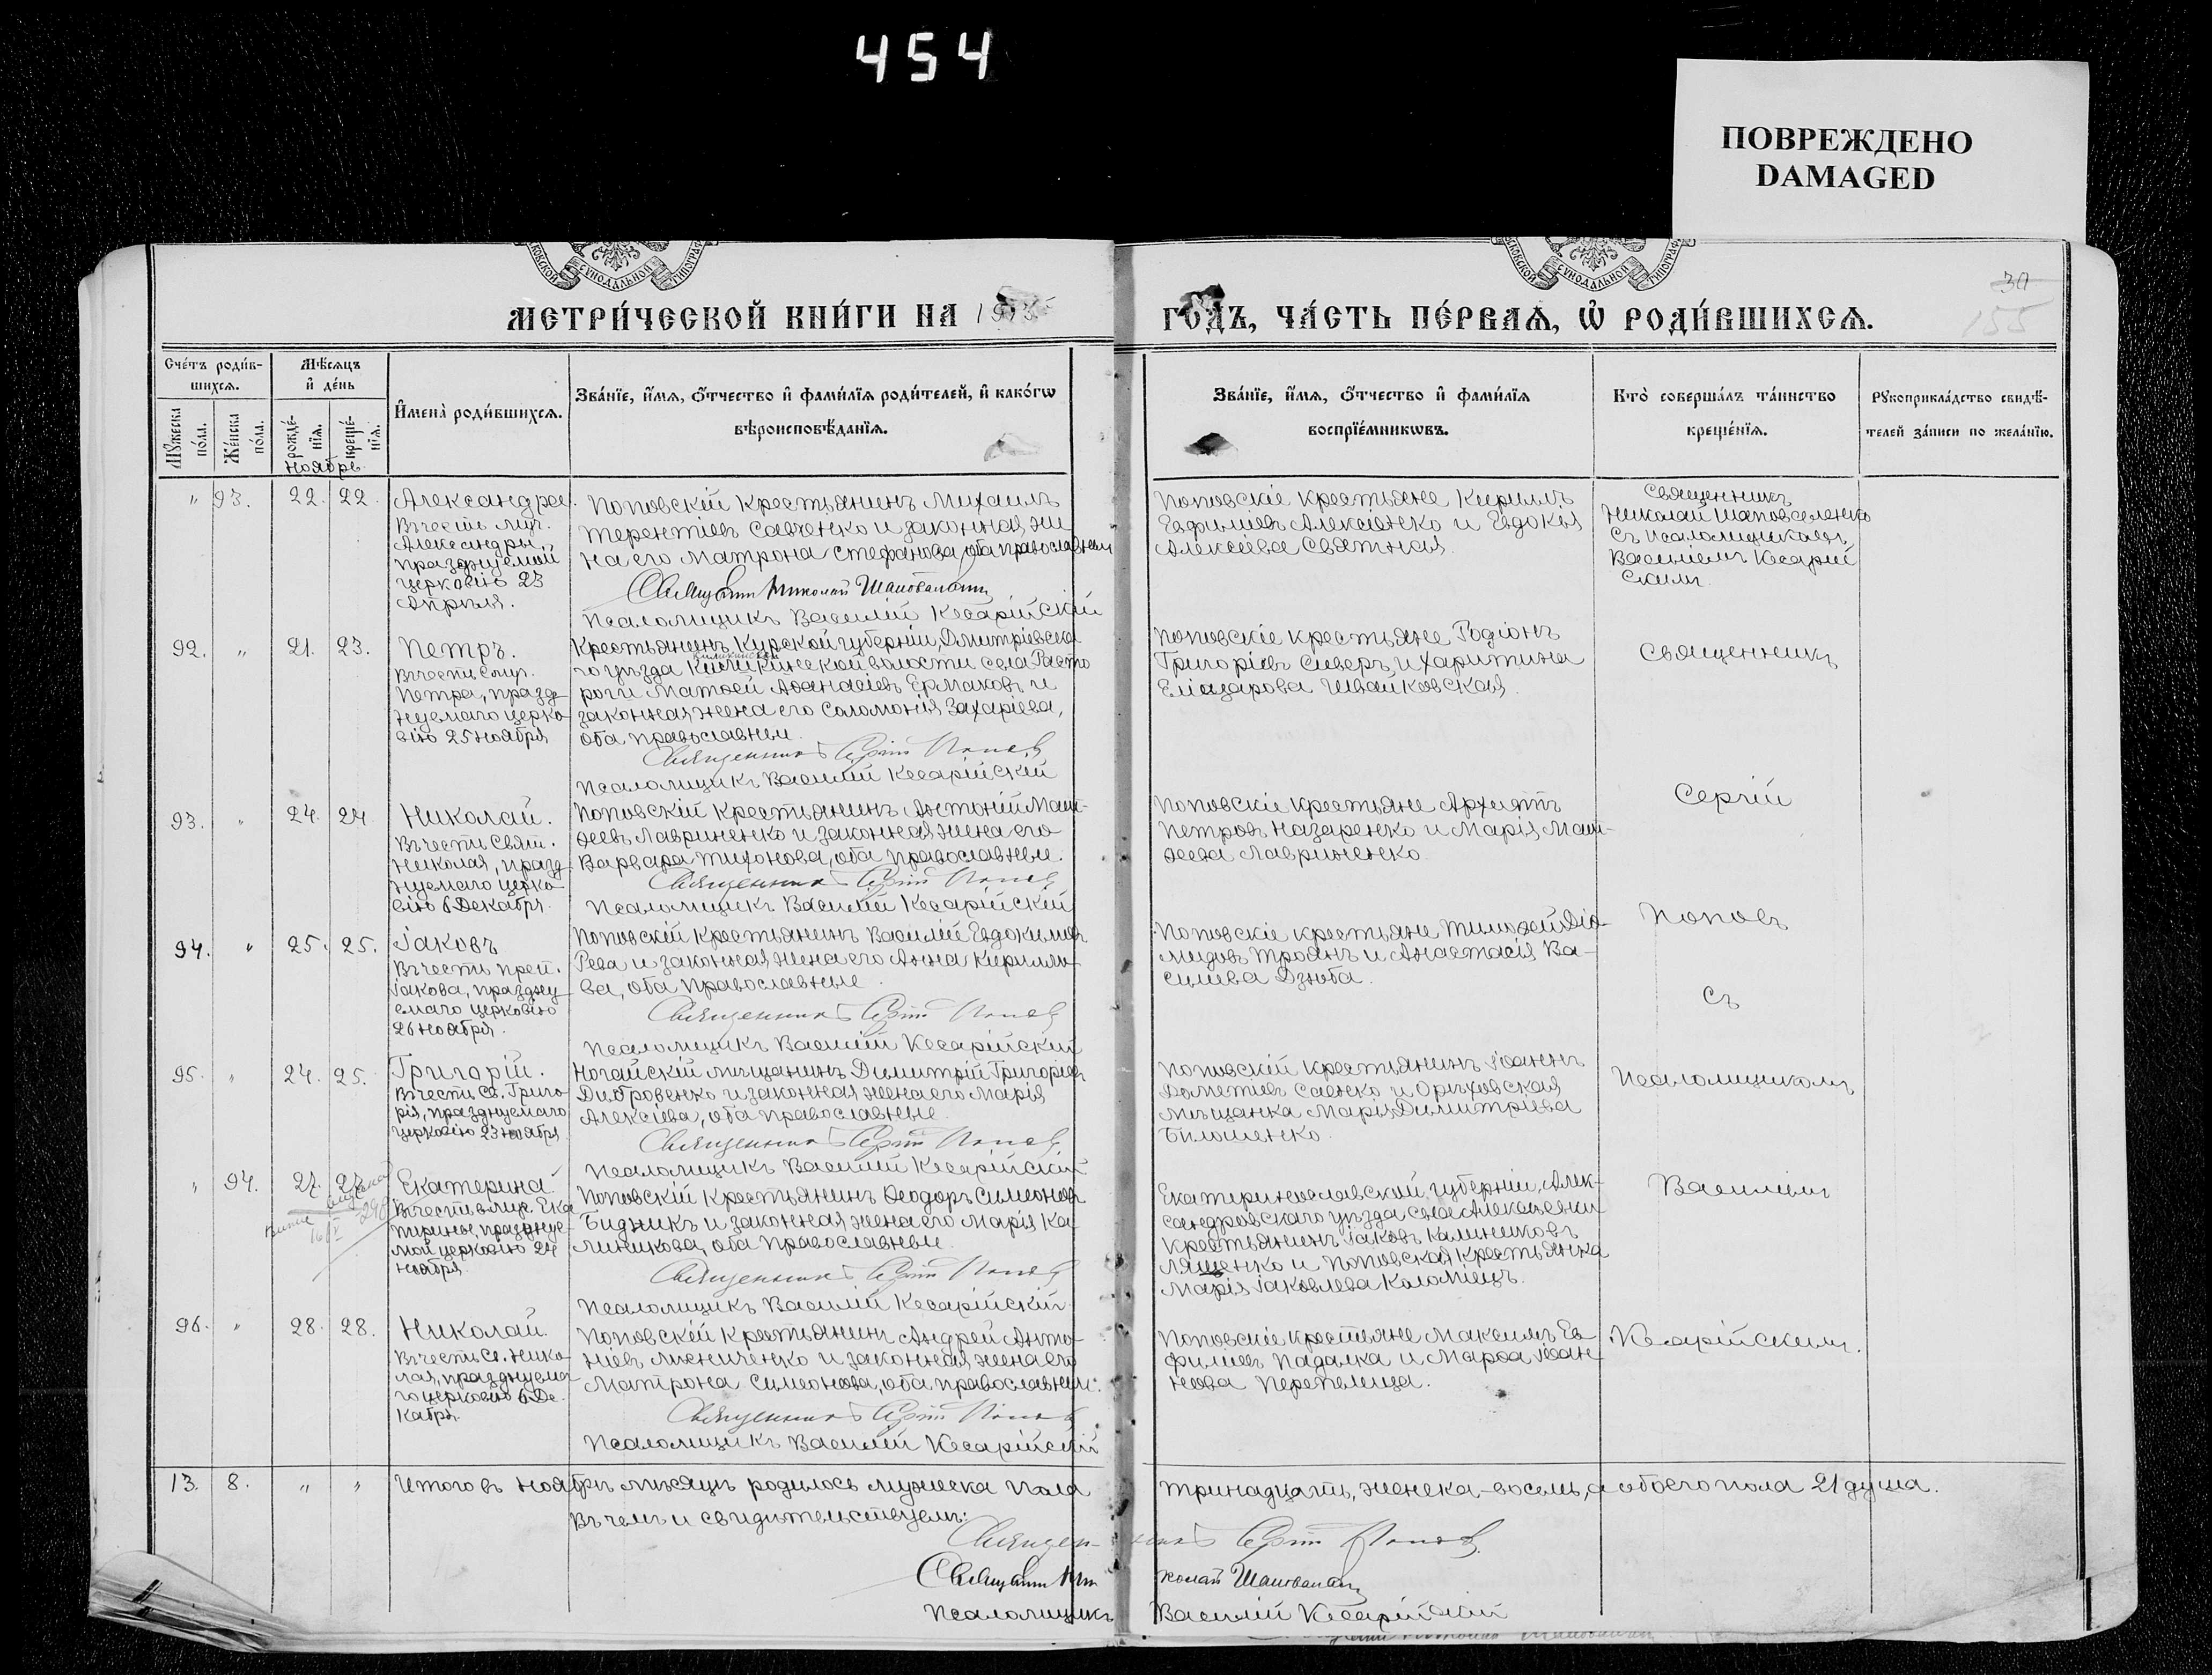 454
ПОВРЕЖДЕНО
DAMAGED
МЕТРИ́ЧЕСКОЙ КНИ́ГИ НА
ГОДЪ, ЧА́СТЬ ПЕ́РВАѦ, Ѡ҆ РОДИ́ВШИХСѦ.
30
155
Сче́тъ роди́в-
шихсѧ.
Мꙋ́жеска по́ла.
Же́нска по́ла.
Мѣ́сѧцъ
и҆ де́нь
рожде́-нїѧ.
креще́-нїѧ.
Ноябрь
И҆мена̀ роди́вшихсѧ.
Зва́нїе, и҆́мѧ, ѻ҆́тчество и҆ фами́лїѧ роди́телей, и҆ како́гѡ
вѣроисповѣ́данїѧ.
Зва́нїе, и҆́мѧ, ѻ҆́тчество и҆ фами́лїѧ
воспрїе́мникѡвъ.
Кто̀ соверша́лъ та́инство
креще́нїѧ.
Рꙋкоприкла́дство свидѣ́-
телей за́писи по жела́нїю.
" 93. 22. 22. Александра.
Въ честь муч.
Александры,
празднуемой
церковію 23
Апрѣля.
Поповскій крестьянинъ Михаилъ
Терентіевъ Савченко и законная же
на его Матрона Стефанова, оба православные
Священникъ Николай
Псаломщикъ Василій Кесарійскій
Поповскіе крестьяне Кириллъ
Евфиміевъ Алексѣенко и Евдокія
Алексѣева Святная
Священникъ
Николай
съ Псаломщикомъ
Василіемъ Кесарій
скимъ.
92. " 21. 23. Петръ.
Въ честь Смуч.
Петра, празд
нуемаго церко
вію 25 Ноября
Крестьянинъ Курской губерніи, Дмитріевска
го уѣзда волости села Расто
роги Матѳей Аѳанасіевъ Ермаковъ и
законная жена его Соломонія Захаріева,
оба православные.
Священникъ Сергій Поповъ
Псаломщикъ Василій Кесарійскій
Поповскіе крестьяне Родіонъ
Григоріевъ Сиверъ и Харитина
Еліазарова Швайковская.
Священникъ
93. " 24. 24. Николай.
Въ честь Свят.
Николая, празд
нуемаго церко
вію 6 Декабря.
Поповскій крестьянинъ Антоній Мат-
ѳеевъ Лавриненко и законная жена его
Варвара Тихонова, оба православные.
Священникъ Сергій Поповъ
Псаломщикъ Василій Кесарійскій
Поповскіе крестьяне Архиппъ
Петровъ Назаренко и Марія Мат-
ѳеева Лавриненко.
Сергій
94. " 25. 25. Іаковъ
Въ честь преп.
Іакова, праздну
емаго церковію
26 Ноября.
Поповскій крестьянинъ Василій Евдокимовъ
Рева и законная жена его Анна Кирилло
ва, оба православные.
Священникъ Сергій Поповъ
Псаломщикъ Василій Кесарійскій
Поповскіе крестьяне Тимоѳей Діо-
мидовъ Троянъ и Анастасія Ва-
силіева Дзюба.
Поповъ
съ
95. " 24. 25. Григорій.
Въ честь Св. Григо
рія, празднуемаго
церковію 23 Ноября
Ногайскій мѣщанинъ Димитрій Григоріевъ
Дибровенко и законная жена его Марія
Алексѣева, оба православные.
Священникъ Сергій Поповъ
Псаломщикъ Василій Кесарійскій
Поповскій крестьянинъ Іоаннъ
Дометіевъ Саенко и Орѣховская
мѣщанка Марія Димитріева
Билошенко.
Псаломщикомъ
" 94. 27. 27. Екатерина.
Въ честь влмуч. Ека
терины, праздн уе-
мой церковію 24
Ноября.
Поповскій крестьянинъ Ѳеодоръ Симеоновъ
Бидникъ и законная жена его Марія Ка-
линикова, оба православные.
Священникъ Сергій Поповъ
Псаломщикъ Василій Кесарійскій
Екатеринославской губерніи, Алек-
сандровскаго уѣзда села Алексѣевки
крестьянинъ Іаковъ Калиниковъ
Лященко и Поповская крестьянка
Марія Іаковлева Коломіецъ.
Василіемъ
96. " 28. 28. Николай.
Въ честь Св. Нико
лая, празднуема
го церковію 6 Де-
кабря.
Поповскій крестьянинъ Андрей Анто-
ніевъ Лисниченко и законная жена его
Матрона Симеонова, оба православные.
Священникъ Сергій Поповъ
Псаломщикъ Василій Кесарійскій
Поповскіе крестьяне Максимъ Ев-
фиміевъ Падалка и Марѳа Іоан-
нова Перепелица.
Кесарійскимъ.
13. 8. " " Итого въ Ноябрѣ мѣсяцѣ родилось мужеска пола тринадцать, женска - восемь, а обоего пола 21 душа.
Въ чемъ и свидѣтельствуемъ:
Священникъ Сергій Поповъ.
Священникъ Николай
Псаломщикъ Василій Кесарійскій